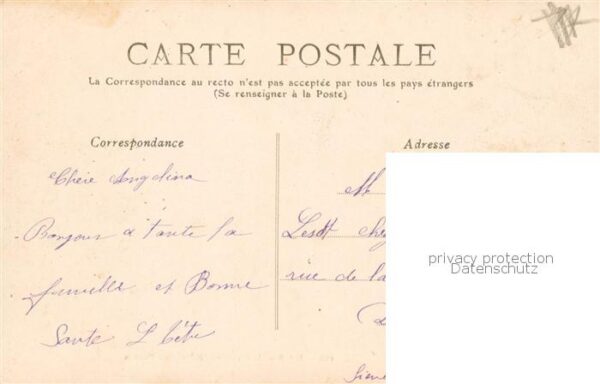 CARTE POSTALE
La Correspondance au recto n'est pas acceptée par tous les pays étrangers
(Se renseigner à la Poste)
Correspondance
Adresse
Chère Angelina
Bonjour a toute la
famille et Bonne
Santé L
M
rue de la
privacy protection
Datenschutz